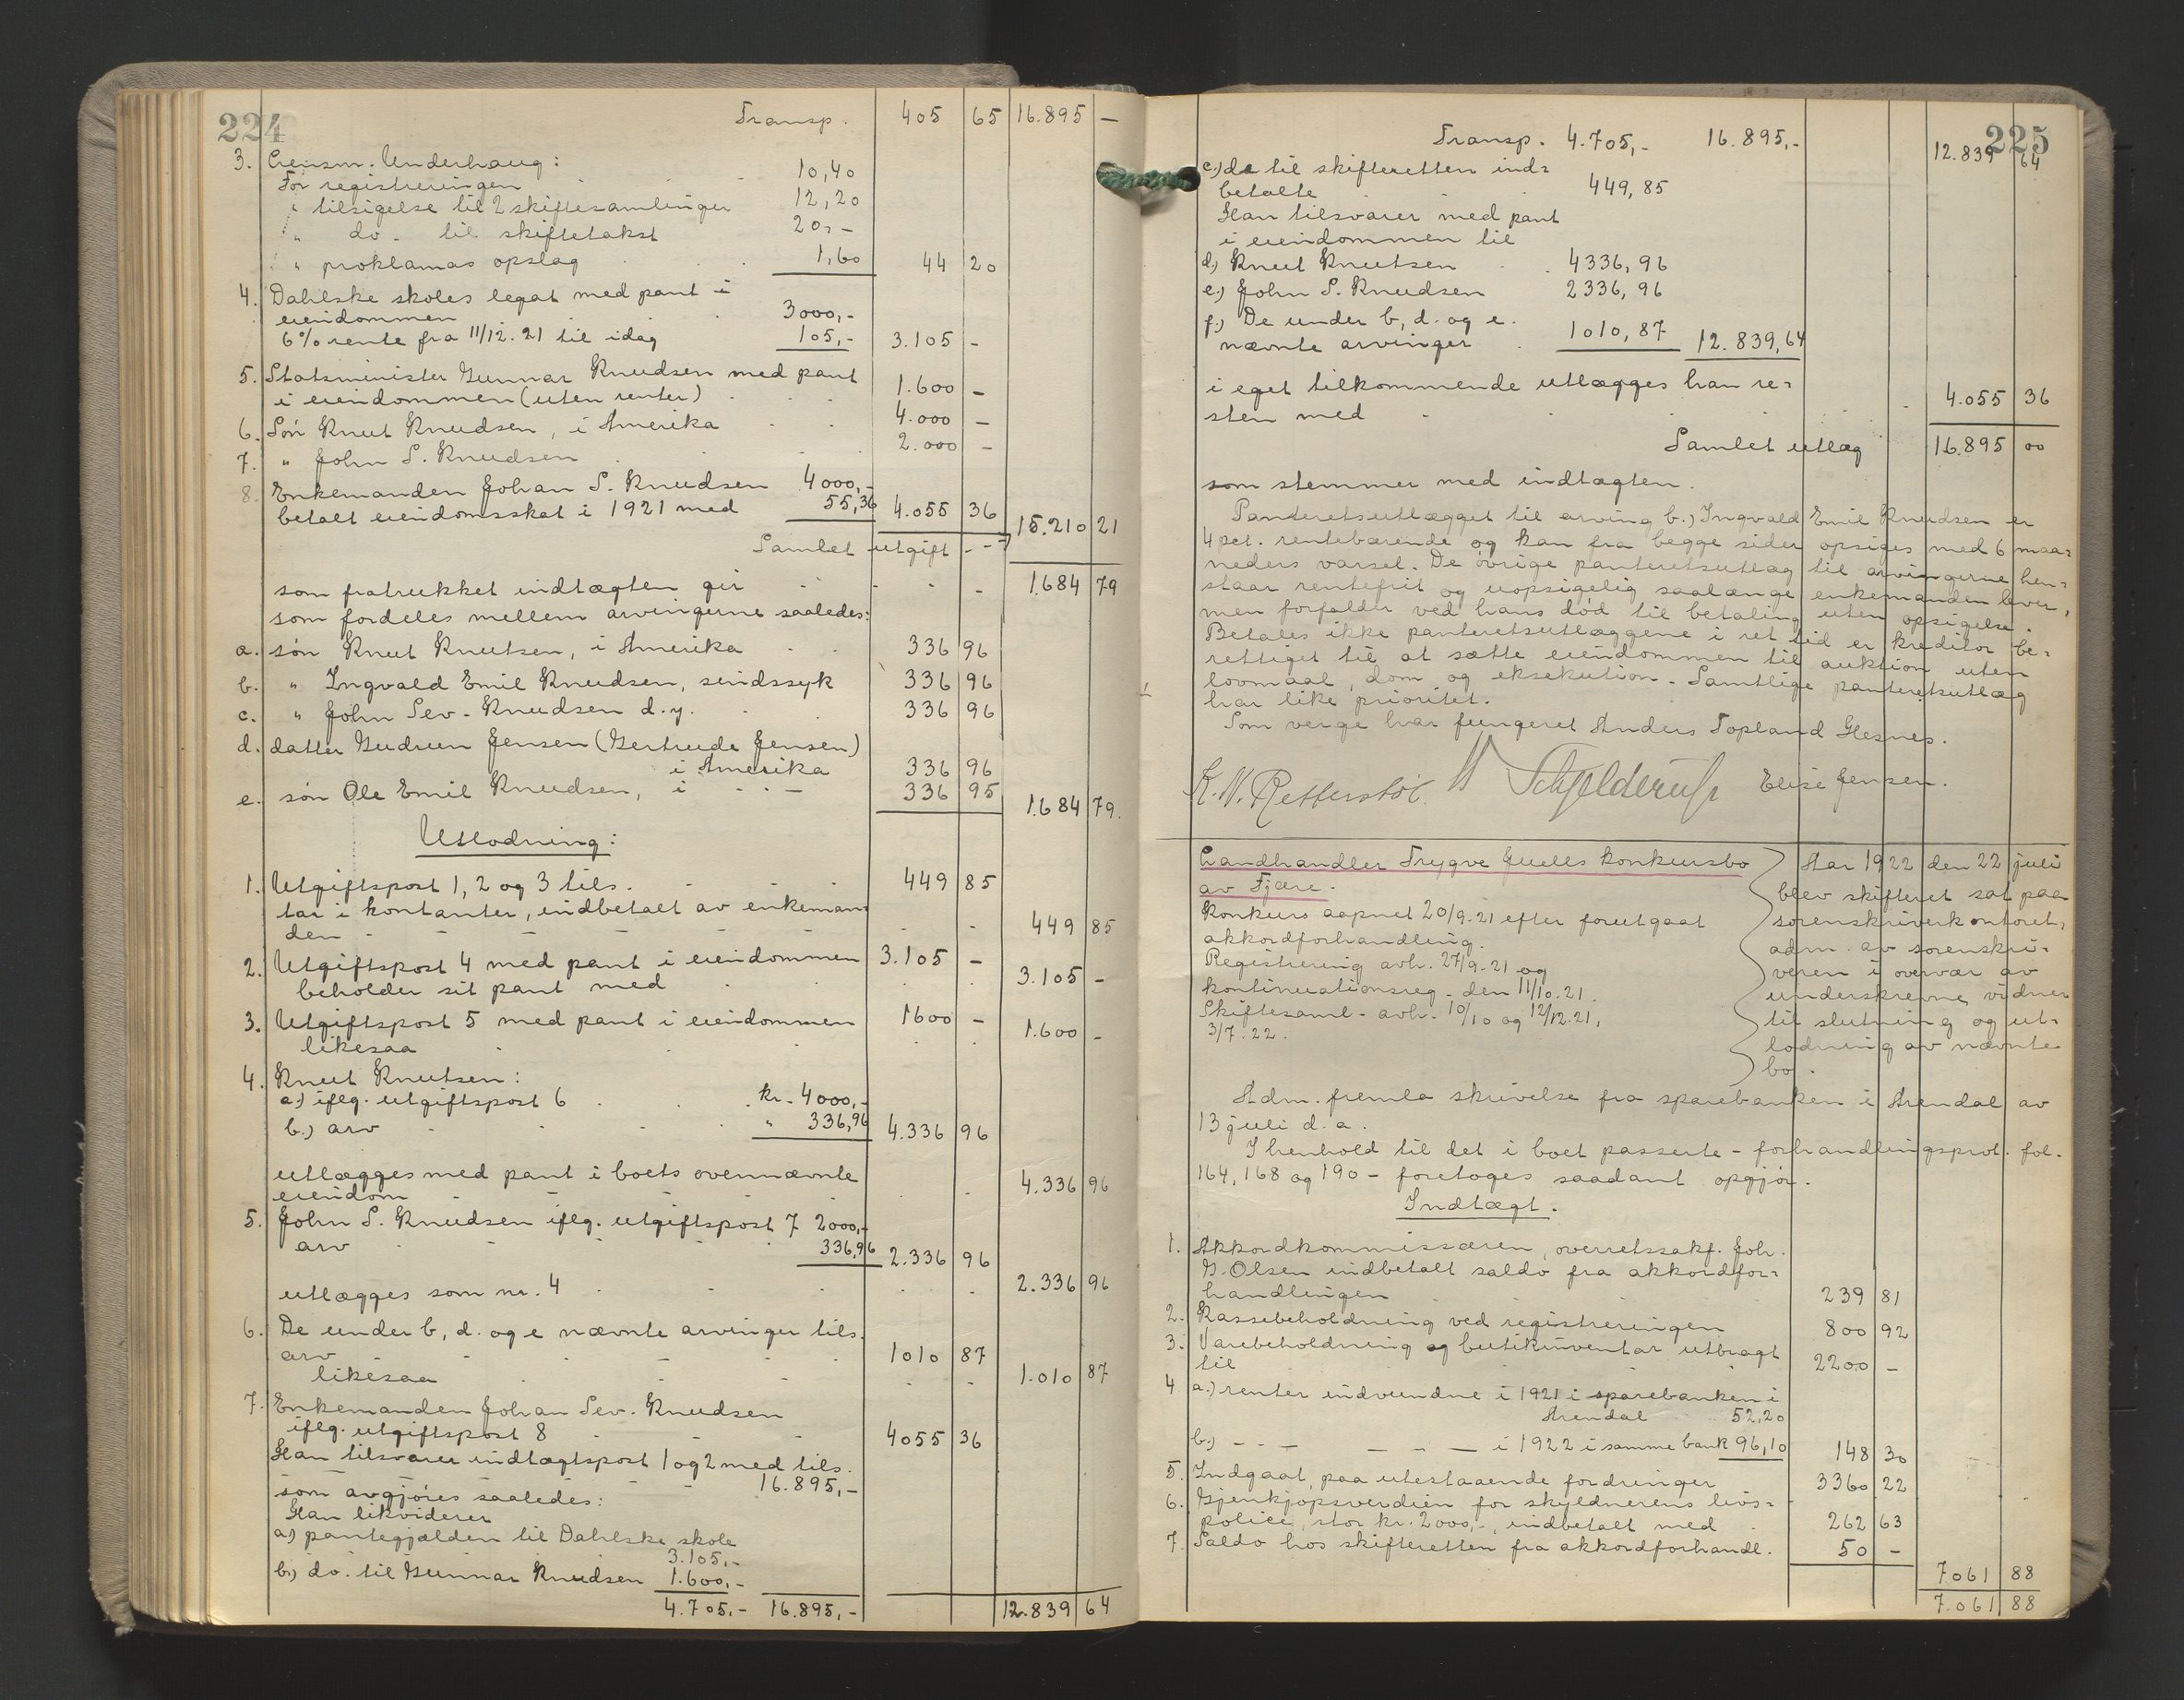 224
Transp. 405 65 16.895 —
3. Lensm. Underhaug:
For registreringen 10,40
" tilsigelse til 2 skiftesamlinger 12,20
" do. til skiftetakst 20,-
" proklamas opslag 1,60 44 20
4. Dahlske skoles legat med pant i
eiendommen 3000,-
6% rente fra 11/12.21 til idag 105,- 3.105 -
5. Statsminister Gunnar Knudsen med pant
i eiendommen (uten renter) 1.600 -
6. Søn Knut Knudsen, i Amerika 4.000 -
7. " John S. Knudsen 2.000 -
8. Enkemanden Johan S. Knudsen 4000,-
betalt eiendomsskat i 1921 med 55,36 4.055 36 15.210 21
Samlet utgift
som fratrukket indtægten gir 1.684 79
som fordeles mellem arvingerne saaledes:
a. søn Knut Knutsen, i Amerika 336 96
b. " Ingvald Emil Knudsen, sindssyk 336 96
c. " John Sev. Knudsen d.y. 336 96
d. datter Gudrun Jensen (Gertrude Jensen)
i Amerika 336 96
e. søn Ole Emil Knudsen, i - " - 336 95 1.684 79.
Utlodning:
1. Utgiftspost 1, 2 og 3 tils. 449 85
tar i kontanter, indbetalt av enkeman=
den 449 85
2. Utgiftspost 4 med pant i eiendommen 3.105 -
beholder sit pant med 3.105 -
3. Utgiftspost 5 med pant i eiendommen 1600 -
likesaa 1.600 -
4. Knut Knutsen:
a.) iflg. utgiftspost 6 kr. 4000,-
b.) arv " 336,96 4.336 96
utlægges med pant i boets ovennævnte
eiendom 4.336 96
5. John S. Knudsen iflg. utgiftspost 7 2000,-
arv 336,96 2.336 96
utlægges som nr. 4 2.336 96
6. De under b, d. og e nævnte arvinger tils.
arv 1010 87
likesaa 1.010 87
7. Enkemanden Johan Sev. Knudsen
iflg. utgiftspost 8 4055 36
Han tilsvarer indtægtspost 1 og 2 med tils.
16.895,-
som avgjøres saaledes:
Han likviderer
a) pantegjælden til Dahlske skole
3.105,-
b.) do. til Gunnar Knudsen 1.600,-
4.705,- 16.895,- 12.839 64
225
Transp. 4.705,- 16.895,- 12.839 64
c.) de til skifteretten ind=
betalte 449,85
Han tilsvarer med pant
i eiendommen til
d.) Knut Knutsen 4336,96
e.) John S. Knudsen 2336,96
f.) De under b, d. og e.
nævnte arvinger 1010,87 12.839,64
i eget tilkommende utlægges han re=
sten med 4.055 36
Samlet utlæg 16.895 00
som stemmer med indtægten.
Panteretsutlægget til arving b.) Ingvald Emil Knudsen er
4 pct. rentebærende og kan fra begge sider opsiges med 6 maa=
neders varsel. De øvrige panteretsutlæg til arvingerne hen=
staar rentefrit og uopsigelig saalænge enkemanden lever,
men forfalder ved hans død til betaling uten opsigelse.
Betales ikke panteretsutlæggene i ret tid er kreditor be=
rettiget til at sætte eiendommen til auktion uten
lovmaal, dom og eksekution. Samtlige panteretsutlæg
har like prioritet.
Som verge har fungeret Anders Topland Hesnes.
Schjelderup Elise Jensen.
Landhandler Trygve Juells konkursbo
av Fjære.
Konkurs aapnet 20/9.21 efter forutgaat
akkordforhandling.
Registrering avh. 27/9.21 og
kontinuationsreg. den 11/10.21.
Skiftesaml. avh. 10/10 og 12/12.21,
3/7.22.
Aar 1922 den 22 juli
blev skifteret sat paa
sorenskriverkontoret,
adm. av sorenskri=
veren i overvær av
underskrevne vidner
til slutning og ut=
lodning av nævnte
bo.
Adm. fremla skrivelse fra sparebanken i Arendal av
13 juli d.a.
I henhold til det i boet passerte - forhandlingsprot. fol.
164, 168 og 190 - foretoges saadant opgjør.
Indtægt.
1. Akkordkommissæren, overretssakf. Joh.
G. Olsen indbetalt saldo fra akkordfor=
handlingen 239 81
2. Kassebeholdning ved registreringen 800 92
3. Varebeholdning og butikinventar utbragt
til 2200 -
4. a.) renter indvundne i 1921 i sparebanken i
Arendal 52,20
b.) - - - - " - i 1922 i samme bank 96,10 148 30
5. Indgaat paa utestaaende fordringer 3360 22
6. Gjenkjøpsverdien for skyldnerens livs=
police, stor kr. 2000,-, indbetalt med 262 63
7. Saldo hos skifteretten fra akkordforhandl. 50 -
7061 88
7.061 88